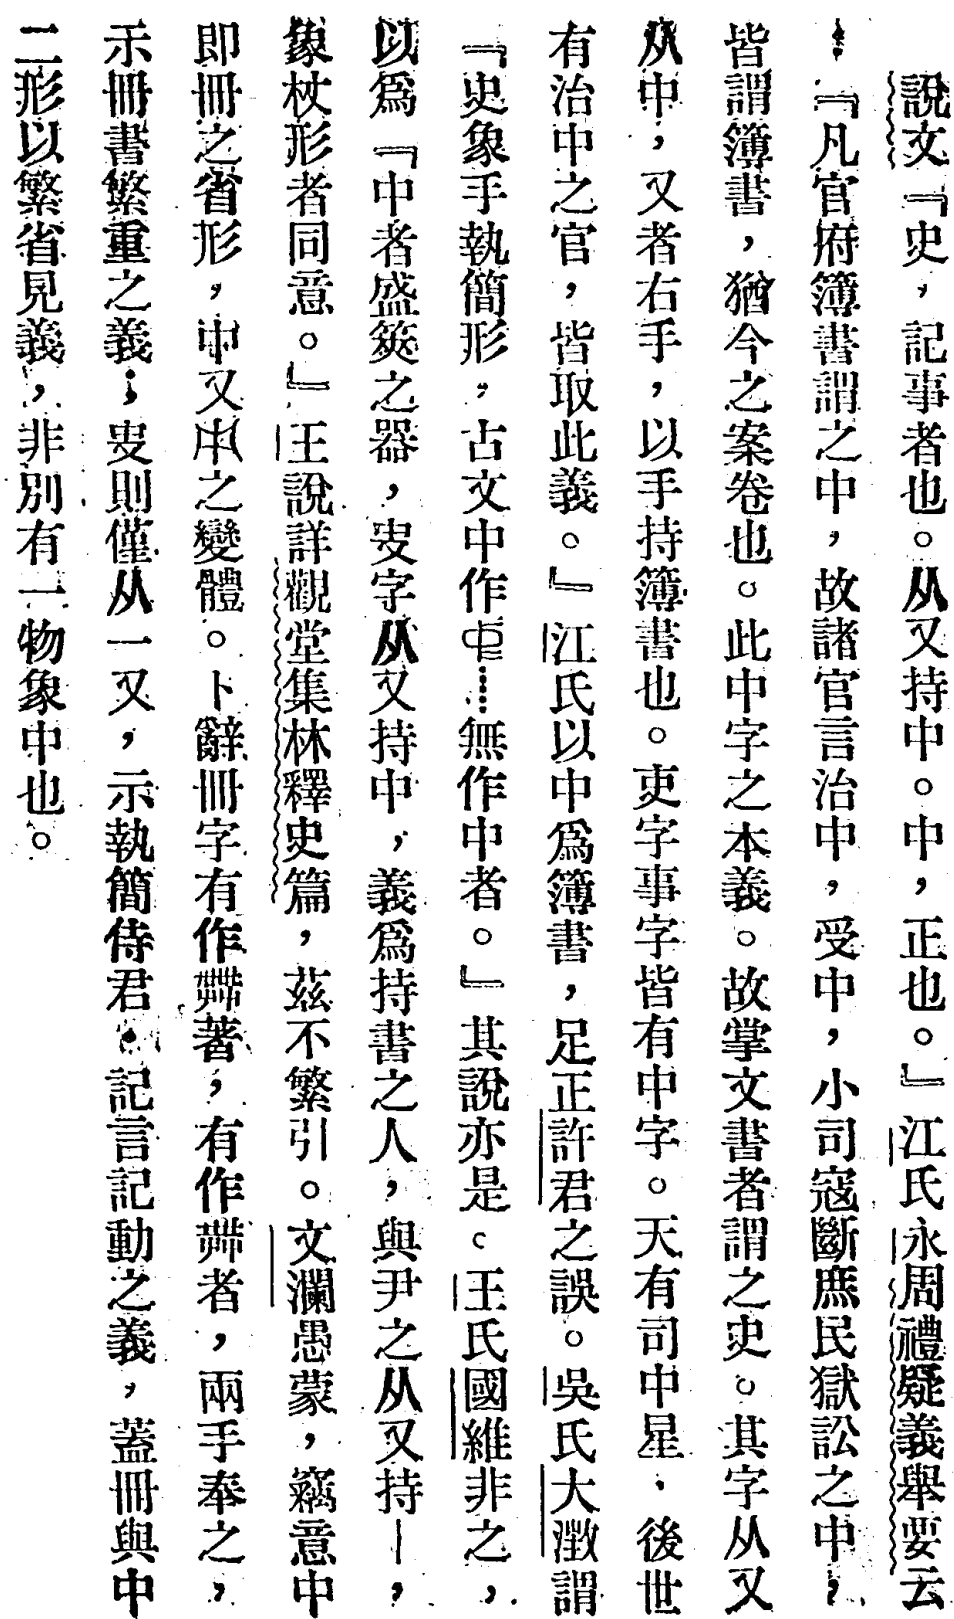 說文『史，記事者也。从又持中。中，正也。』江氏永周禮疑義舉要云
：『凡官府簿書謂之中，故諸官言治中，受中，小司寇斷庶民獄訟之中，
皆謂簿書，猶今之案卷也。此中字之本義。故掌文書者謂之史。其字从又
从中，又者右手，以手持簿書也。吏字事字皆有中字。天有司中星，後世
有治中之官，皆取此義。』江氏以中爲簿書，足正許君之誤。吳氏大澂謂
『史象手執簡形，古文中作……無作中者。』其說亦是。王氏國維非之，
以爲『中者盛筴之器，㕜字从又持中，義爲持書之人，與尹之从又持丨，
象杖形者同意。』王說詳觀堂集林釋史篇，茲不繁引。文瀾愚蒙，竊意中
即冊之省形，又之變體。卜辭冊字有作著，有作者，兩手奉之，
示冊書繁重之義；㕜則僅从一又，示執簡侍君，記言記動之義，蓋冊與中
二形以繁省見義，非別有一物象中也。